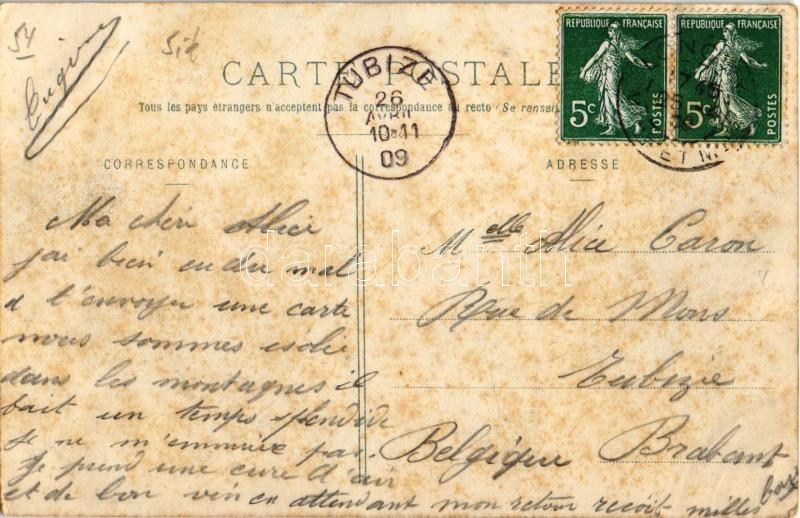 54
Eugène
CARTE POSTALE
TUBIZE
26
AVRIL
10-11
09
REPUBLIQUE FRANÇAISE
5c
POSTES
REPUBLIQUE FRANÇAISE
5c
POSTES
Tous les pays étrangers n'acceptent pas la correspondance au recto (Se renseig
CORRESPONDANCE
Ma chère Alice
j'ai bien eu du mal
a t'envoyer une carte
nous sommes isolée
dans les montagnes il
fait un temps splendide
je ne m'ennuie pas.
Je prend une cure d'air
et de bon vin en attendant mon retour reçoit milles
ADRESSE
Melle Alice Caron
Rue de Mons
Tubize
Belgique Brabant
darabanth